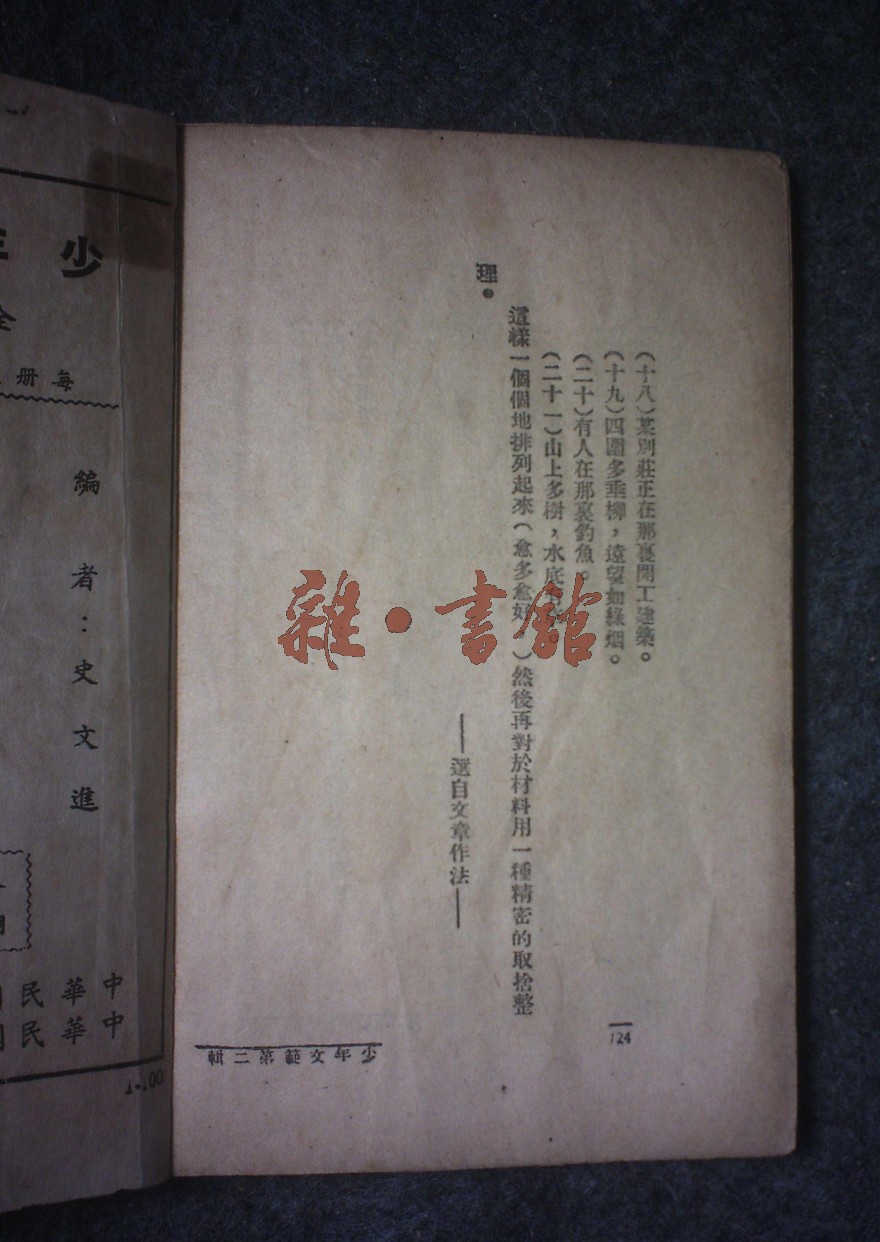 (十八)某別莊正在那裏開工建築。
(十九)四圍多垂柳，遠望如綠烟。
(二十)有人在那裏釣魚。
(二十一)山上多樹，水底
這樣一個個地排列起來(愈多愈好，)然後再對於材料用一種精密的取捨整
理。
——選自文章作法——
124
少年文範第二輯
雜·書館
少
全
每册
編者：史文進
中華民
中華民